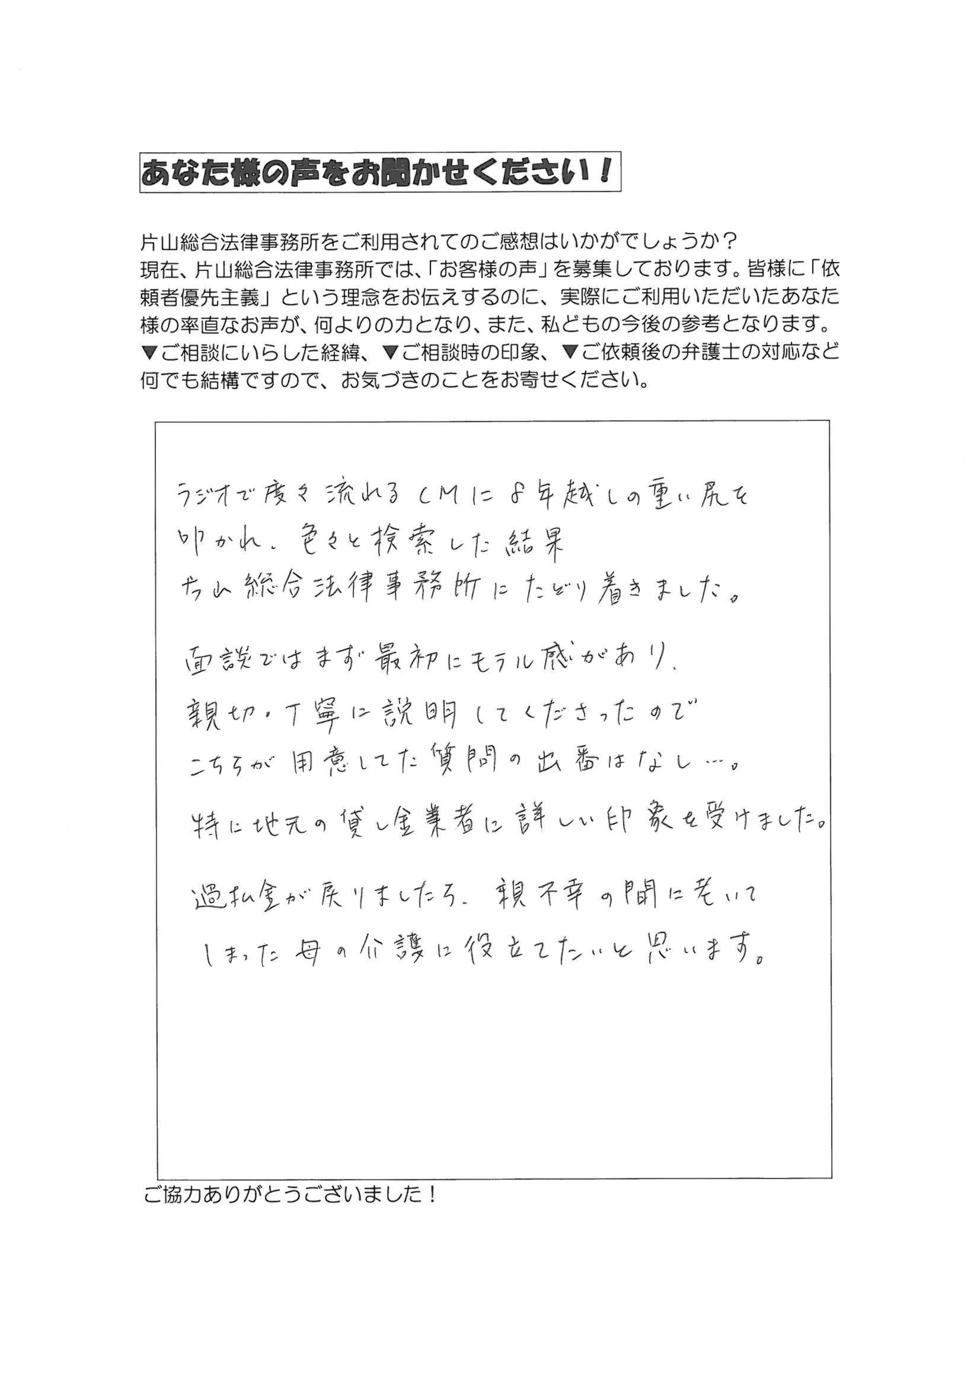 あなた様の声をお聞かせください！
片山総合法律事務所をご利用されてのご感想はいかがでしょうか？
現在、片山総合法律事務所では、「お客様の声」を募集しております。皆様に「依
頼者優先主義」という理念をお伝えするのに、実際にご利用いただいたあなた
様の率直なお声が、何よりの力となり、また、私どもの今後の参考となります。
▼ご相談にいらした経緯、▼ご相談時の印象、▼ご依頼後の弁護士の対応など
何でも結構ですので、お気づきのことをお寄せください。
ラジオで度々流れるCMに8年越しの重い尻を
叩かれ、色々と検索した結果
片山総合法律事務所にたどり着きました。
面談ではまず最初にモラル感があり、
親切・丁寧に説明してくださったので
こちらが用意してた質問の出番はなし…。
特に地元の貸し金業者に詳しい印象を受けました。
過払金が戻りましたら、親不幸の間に老いて
しまった母の介護に役立てたいと思います。
ご協力ありがとうございました！